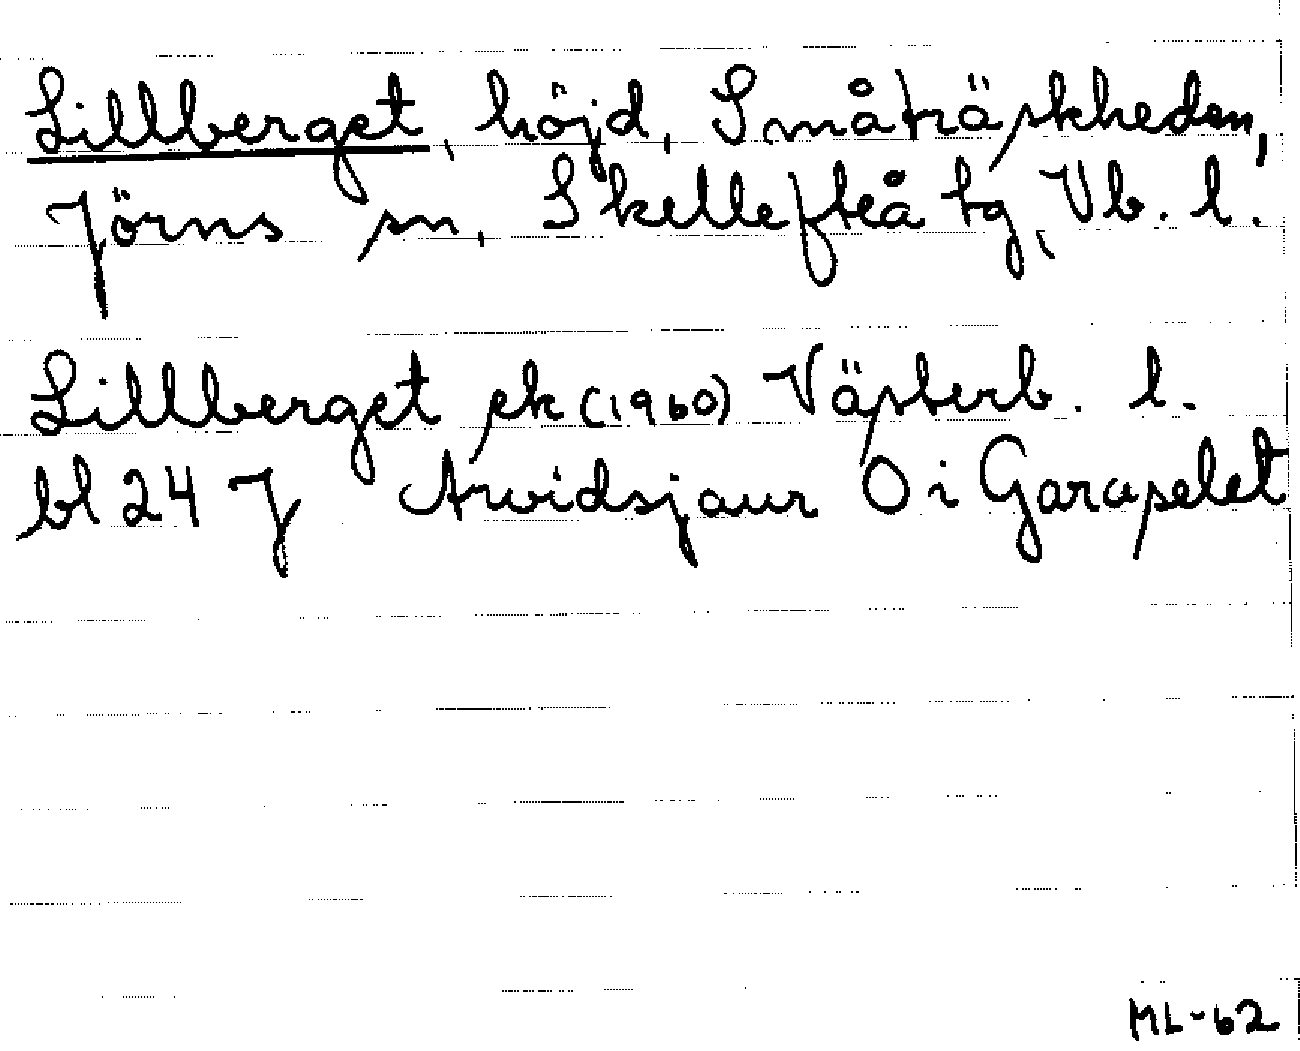 Lillberget, höjd, Småträskheden,
Jörns sn, Skellefteå tg, Vb. l.
Lillberget ek (1960) Västerb. l.
bl 24 J Arvidsjaur O i Garaselet
ML-62